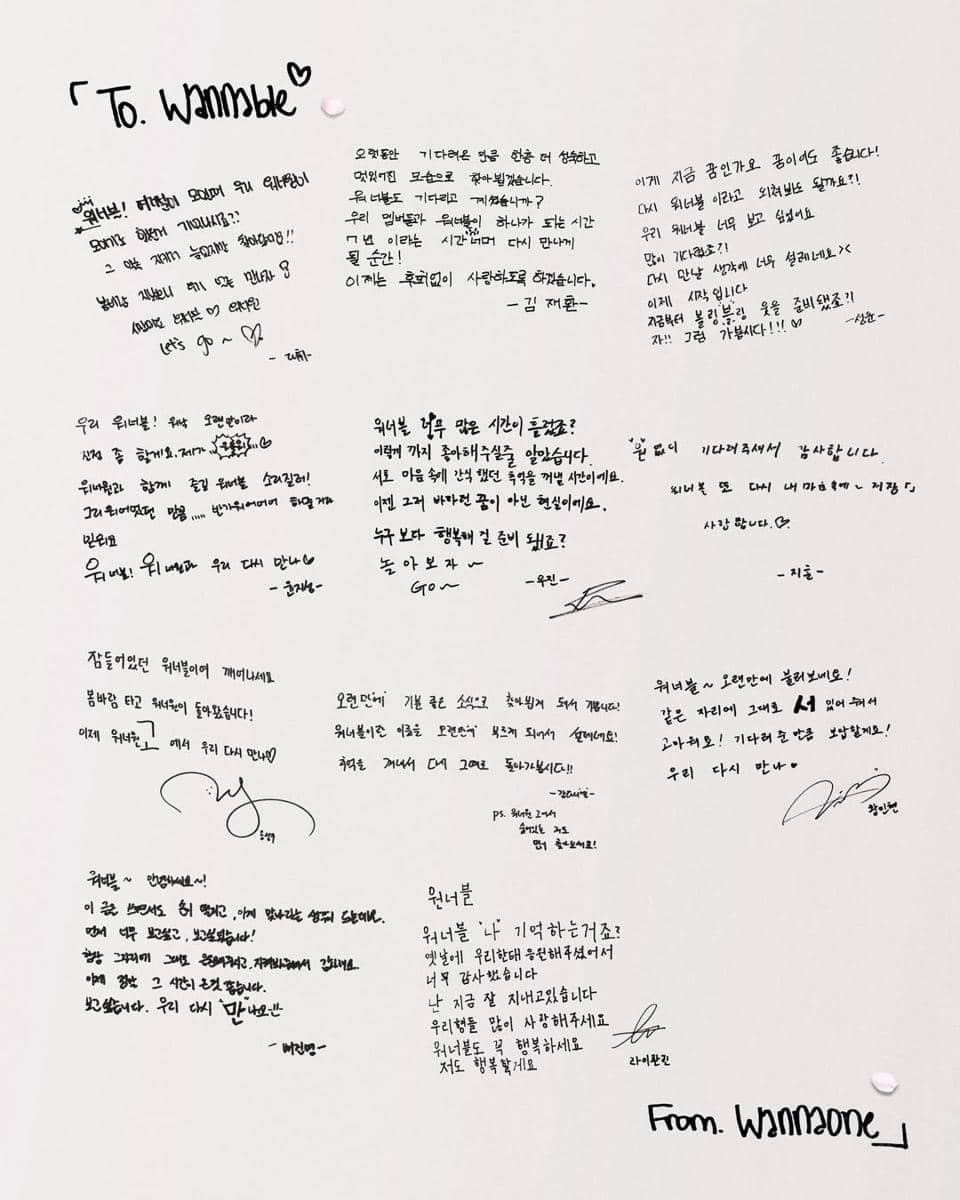 「To. Wannable♡
워너블!
그 이후
Let's go ~ ♡
오랫동안 기다려온 만큼 한층 더 성숙하고
멋있어진 모습으로 찾아뵙겠습니다.
워너블도 기다리고 계셨습니까?
우리 멤버들과 워너블이 하나가 되는 시간
7년 이라는 시간 너머 다시 만나게
될 순간!
이제는 후회없이 사랑하도록 하겠습니다.
- 김재환 -
이게 지금 꿈인가요 꿈이어도 좋습니다!
다시 워너블 이라고 외쳐봐도 될까요?!
우리 워너블 너무 보고 싶었어요
많이 기다렸죠?!
다시 만날 생각에 너무 설레네요 ><
이제 시작입니다
지금부터 블링"블"링 웃을 준비됐죠?!
자!! 그럼 가봅시다!!! ♡
- 성운 -
우리 워너블! 워낙 오랜만이라
긴장 좀 할게요. 제가
워너원과 함께 즐길 워너블 소리질러!
그리워어었던 만큼 ,,,,, 반가워어어어 하실거라
믿워요
워너블! 워너원과 우리 다시 만나♡
- 윤지성 -
워너블 너무 많은 시간이 흘렀죠?
이렇게 까지 좋아해주실줄 알았습니다.
서로 마음 속에 간직했던 추억을 꺼낼 시간이에요.
이젠 그저 바라던 꿈이 아닌 현실이에요.
누구보다 행복해 질 준비 됐죠?
놀 아 보 자 ~
Go ~
- 우진 -
"윙"없이 기다려주셔서 감사합니다.
워너블 또 다시 내 마음속에 ~ 저장「」
사랑합니다.♡
- 지훈 -
잠들어있던 워너블이여 깨어나세요
봄바람 타고 워너원이 돌아왔습니다!
이제 워너원고 에서 우리 다시 만나♡
옹성우
오랜만에 기분 좋은 소식으로 찾아뵙게 돼서 기쁩니다!
워너블이란 이름을 오랜만에 부르게 되어서 설레네요!
추억을 꺼내서 다시 그때로 돌아가봅시다!!
- 강다니엘 -
PS. 워너원 고에서
숨어있는 저도
먼저 찾아보세요!
워너블 ~ 오랜만에 불러보네요!
같은 자리에 그대로 서 있어 줘서
고마워요! 기다려 준 만큼 보답할게요!
우리 다시 만나♥
황민현
워너블 ~ 안녕하세요~!
이 글을 쓰면서도 손이 떨리고, 이게 맞나라는 생각이 드는데요.
먼저 너무 보고싶고, 보고싶었습니다!
항상 그자리에 그대로
이제 정말 그 시간이 온것 같습니다.
보고싶습니다. 우리 다시 "만"나요!!
- 배진영 -
워너블
워너블 "나" 기억하는거죠?
옛날에 우리한테 응원해주셨어서
너무 감사했습니다
난 지금 잘 지내고있습니다
우리형들 많이 사랑해주세요
워너블도 꼭 행복하세요
저도 행복할게요
라이관린
From. Wannaone」